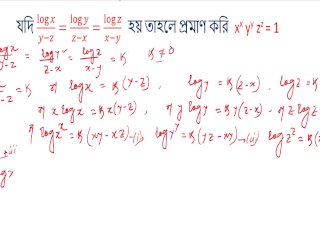 যদি log x / y−z = log y / z−x = log z / x−y হয় তাহলে প্রমাণ করি xˣ yʸ zᶻ = 1
log x / y−z = log y / z−x = log z / x−y = k k ≠ 0
= k বা log x = k(y−z) , log y = k(z−x) , log z = k
বা x log x = kx(y−z) , বা y log y = ky(z−x) বা z log z
বা log xˣ = k(xy−xz)—(i) , log yʸ = k(yz−xy)—(ii) log zᶻ = k(
+iii
log x